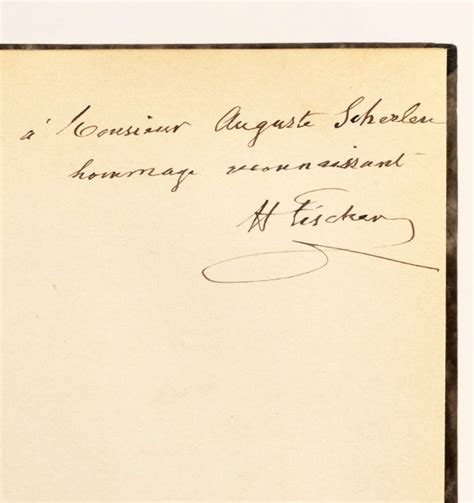 à Monsieur Auguste Scherlen
hommage reconnaissant
H Fischer